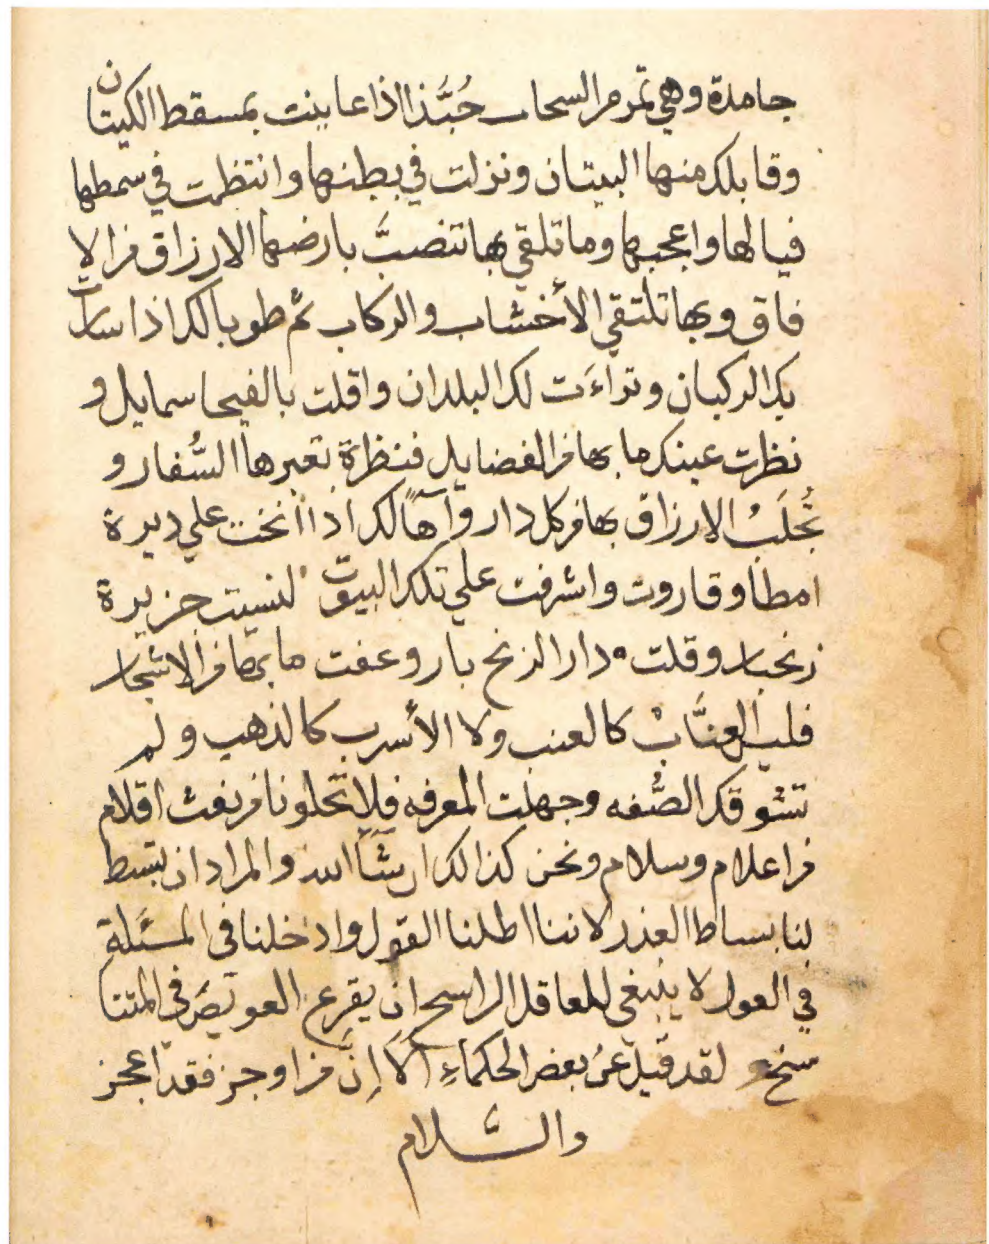 جامدة وهي تمر مر السحاب حُبَّذا اذا عاينت بمسقط الكيتان
وقابلك منها البيتان ونزلت في بطنها وانتظمت في سمطها
فيالها واعجبها وما تلقي بها تنصبَّ بارضها الارزاق من الا
فاق وبها تلتقي الأخشاب والركاب ثمَّ طوبا لك اذا سارت
بك الركبان وتراءَت لك البلدان واقلت بالفيحا سمايل و
نظرت عينك ما بها من الفضايل فنظرة تعبرها السُّفار و
تُجلَبُ الارزاق بها من كل دار وآهاً لك اذا أنخت علي ديرة
امطا وقاروت واشرفت علي تلك البيوت لنسيت جزيرة
زنجبار وقلت دار الزنج بار وعفت ما بها من الاشجار
فليس العنَّاب كالعنب ولا الأسرب كالذهب ولم
تشوقك الصُّفه وجهلت المعرفه فلا تخلونا من نفث اقلام
من اعلام وسلام ونحن كذالك ان شآء الله والمراد ان تبسط
لنا بساط العذر لاننا اطلنا القول وادخلنا في المسَئلة
في العول لا ينبغي للعاقل الراسخ ان يقرع العو يَصَ في المتنا
سخ لقد قيل عن بعض الحكماءِ الا إنَّ من اوجز فقد اعجز
والسَّلام